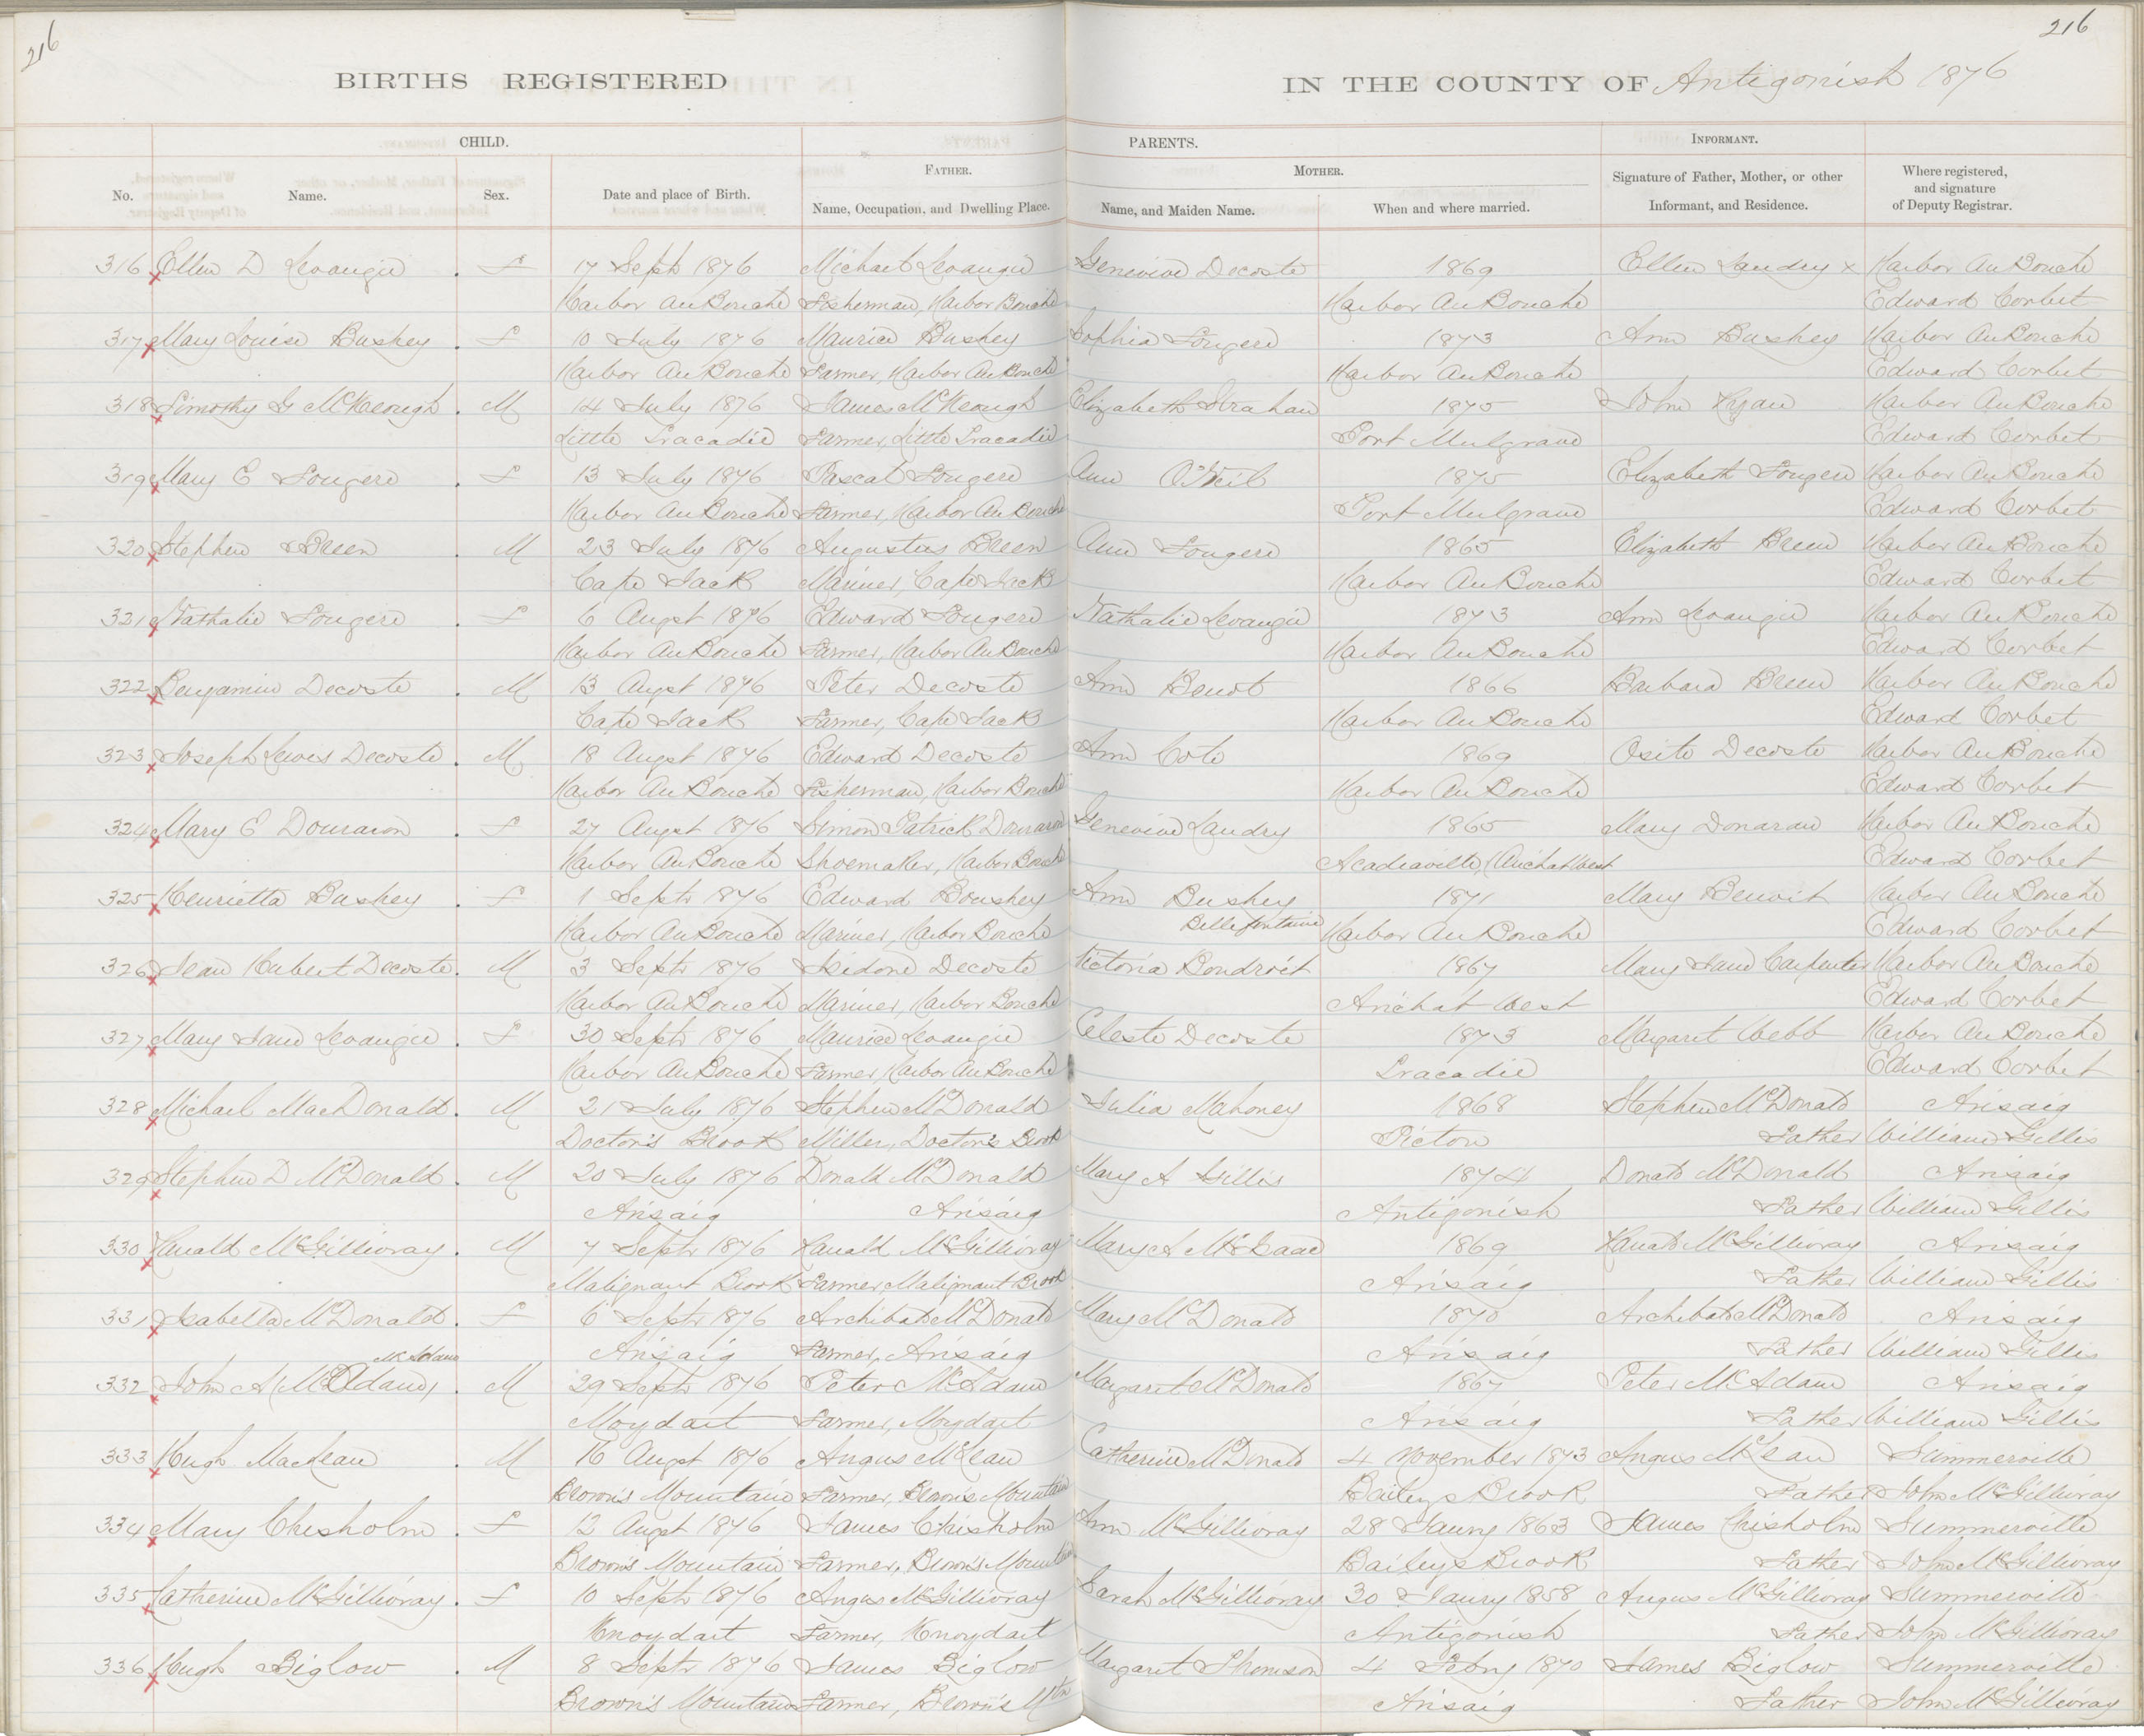 216 216
BIRTHS REGISTERED IN THE COUNTY OF Antigonish 1876
CHILD. PARENTS. INFORMANT.
FATHER. MOTHER.
No. Name. Sex. Date and place of Birth. Name, Occupation, and Dwelling Place. Name, and Maiden Name. When and where married. Signature of Father, Mother, or other Informant, and Residence. Where registered, and signature of Deputy Registrar.
316 Ellen D Levangie . F 17 Septr 1876 Michael Levangie Genevive Decoste 1869 Ellen Landry x Harbor Au Bouche
Harbor Au Bouche Fisherman, Harbor Bouche Harbor Au Bouche Edward Corbet
317 Mary Louise Bushey . F 10 July 1876 Maurice Bushey Sophia Fougere 1873 Ann Bushey Harbor Au Bouche
Harbor Au Bouche Farmer, Harbor Au Bouche Harbor Au Bouche Edward Corbet
318 Timothy G McKeough . M 14 July 1876 James McKeough Elizabeth Strahan 1875 John Ryan Harbor Au Bouche
Little Tracadie Farmer, Little Tracadie Port Mulgrave Edward Corbet
319 Mary E Fougere . F 13 July 1876 Pascal Fougere Ann O'Neil 1875 Elizabeth Fougere Harbor Au Bouche
Harbor Au Bouche Farmer, Harbor Au Bouche Port Mulgrave Edward Corbet
320 Stephen Breen . M 23 July 1876 Augustus Breen Ann Fougere 1865 Elizabeth Breen Harbor Au Bouche
Cape Jack Mariner, Cape Jack Harbor Au Bouche Edward Corbet
321 Nathalie Fougere . F 6 Augst 1876 Edward Fougere Nathalie Levangie 1873 Ann Levangie Harbor Au Bouche
Harbor Au Bouche Farmer, Harbor Au Bouche Harbor Au Bouche Edward Corbet
322 Benjamin Decoste . M 13 Augst 1876 Peter Decoste Ann Benot 1866 Barbara Breen Harbor Au Bouche
Cape Jack Farmer, Cape Jack Harbor Au Bouche Edward Corbet
323 Joseph Lewes Decoste . M 18 Augst 1876 Edward Decoste Ann Cote 1869 Osite Decoste Harbor Au Bouche
Harbor Au Bouche Fisherman, Harbor Bouche Harbor Au Bouche Edward Corbet
324 Mary E Douraron . F 27 Augst 1876 Simon Patrick Douraron Genevive Landry 1865 Mary Donaran Harbor Au Bouche
Harbor Au Bouche Shoemaker, Harbor Bouche Acadiaville, (Arichat West Edward Corbet
325 Henrietta Bushey . F 1 Septr 1876 Edward Boushey Ann Bushey 1871 Mary Benoit Harbor Au Bouche
Harbor Au Bouche Mariner, Harbor Bouche Bellefontaine Harbor Au Bouche Edward Corbet
326 Jean Hubert Decoste . M 3 Septr 1876 Isidore Decoste Victoria Boudroit 1867 Mary Jane Carpenter Harbor Au Bouche
Harbor Au Bouche Mariner, Harbor Bouche Arichat West Edward Corbet
327 Mary Jane Levangie . F 30 Septr 1876 Maurice Levangie Celeste Decoste 1873 Margaret Webb Harbor Au Bouche
Harbor Au Bouche Farmer, Harbor Au Bouche Tracadie Edward Corbet
328 Michael MacDonald . M 21 July 1876 Stephen McDonald Julia Mahoney 1868 Stephen McDonald Arisaig
Doctor's Brook Miller, Doctor's Brook Pictou Father William Gillis
329 Stephen D McDonald . M 20 July 1876 Donald McDonald Mary A Gillis 1874 Donald McDonald Arisaig
Arisaig Arisaig Antigonish Father William Gillis
330 Ranald McGillivray . M 7 Septr 1876 Ranald McGillivray Mary A McIsaac 1869 Ranald McGillivray Arisaig
Malignant Brook Farmer Malignant Brook Arisaig Father William Gillis
331 Isabella McDonald . F 6 Septr 1876 Archibald McDonald Mary McDonald 1870 Archibald McDonald Arisaig
Arisaig Farmer, Arisaig Arisaig Father William Gillis
McAdam
332 John A (McAdam) . M 29 Septr 1876 Peter McAdam Margaret McDonald 1867 Peter McAdam Arisaig
Moydart Farmer, Moydart Arisaig Father William Gillis
333 Hugh MacLean . M 16 Augst 1876 Angus McLean Catherine McDonald 4 November 1873 Angus McLean Summerville
Brown's Mountain Farmer, Brown's Mountain Baileys Brook Father John McGillivray
334 Mary Chisholm . F 12 Augst 1876 James Chisholm Ann McGillivray 28 Jauny 1863 James Chisholm Summerville
Brown's Mountain Farmer, Brown's Mountain Baileys Brook Father John McGillivray
335 Catherine McGillivray . F 10 Septr 1876 Angus McGillivray Sarah McGillivray 30 Jauny 1858 Angus McGillivray Summerville
Knoydart Farmer, Knoydart Antigonish Father John McGillivray
336 Hugh Biglow . M 8 Septr 1876 James Biglow Margaret Thomson 4 Febry 1870 James Biglow Summerville
Brown's Mountain Farmer, Brown's Mtn Arisaig Father John McGillivray